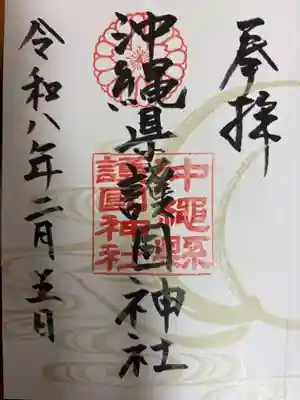 奉拝
沖縄県護国神社
沖繩縣
護國神社
令和八年二月